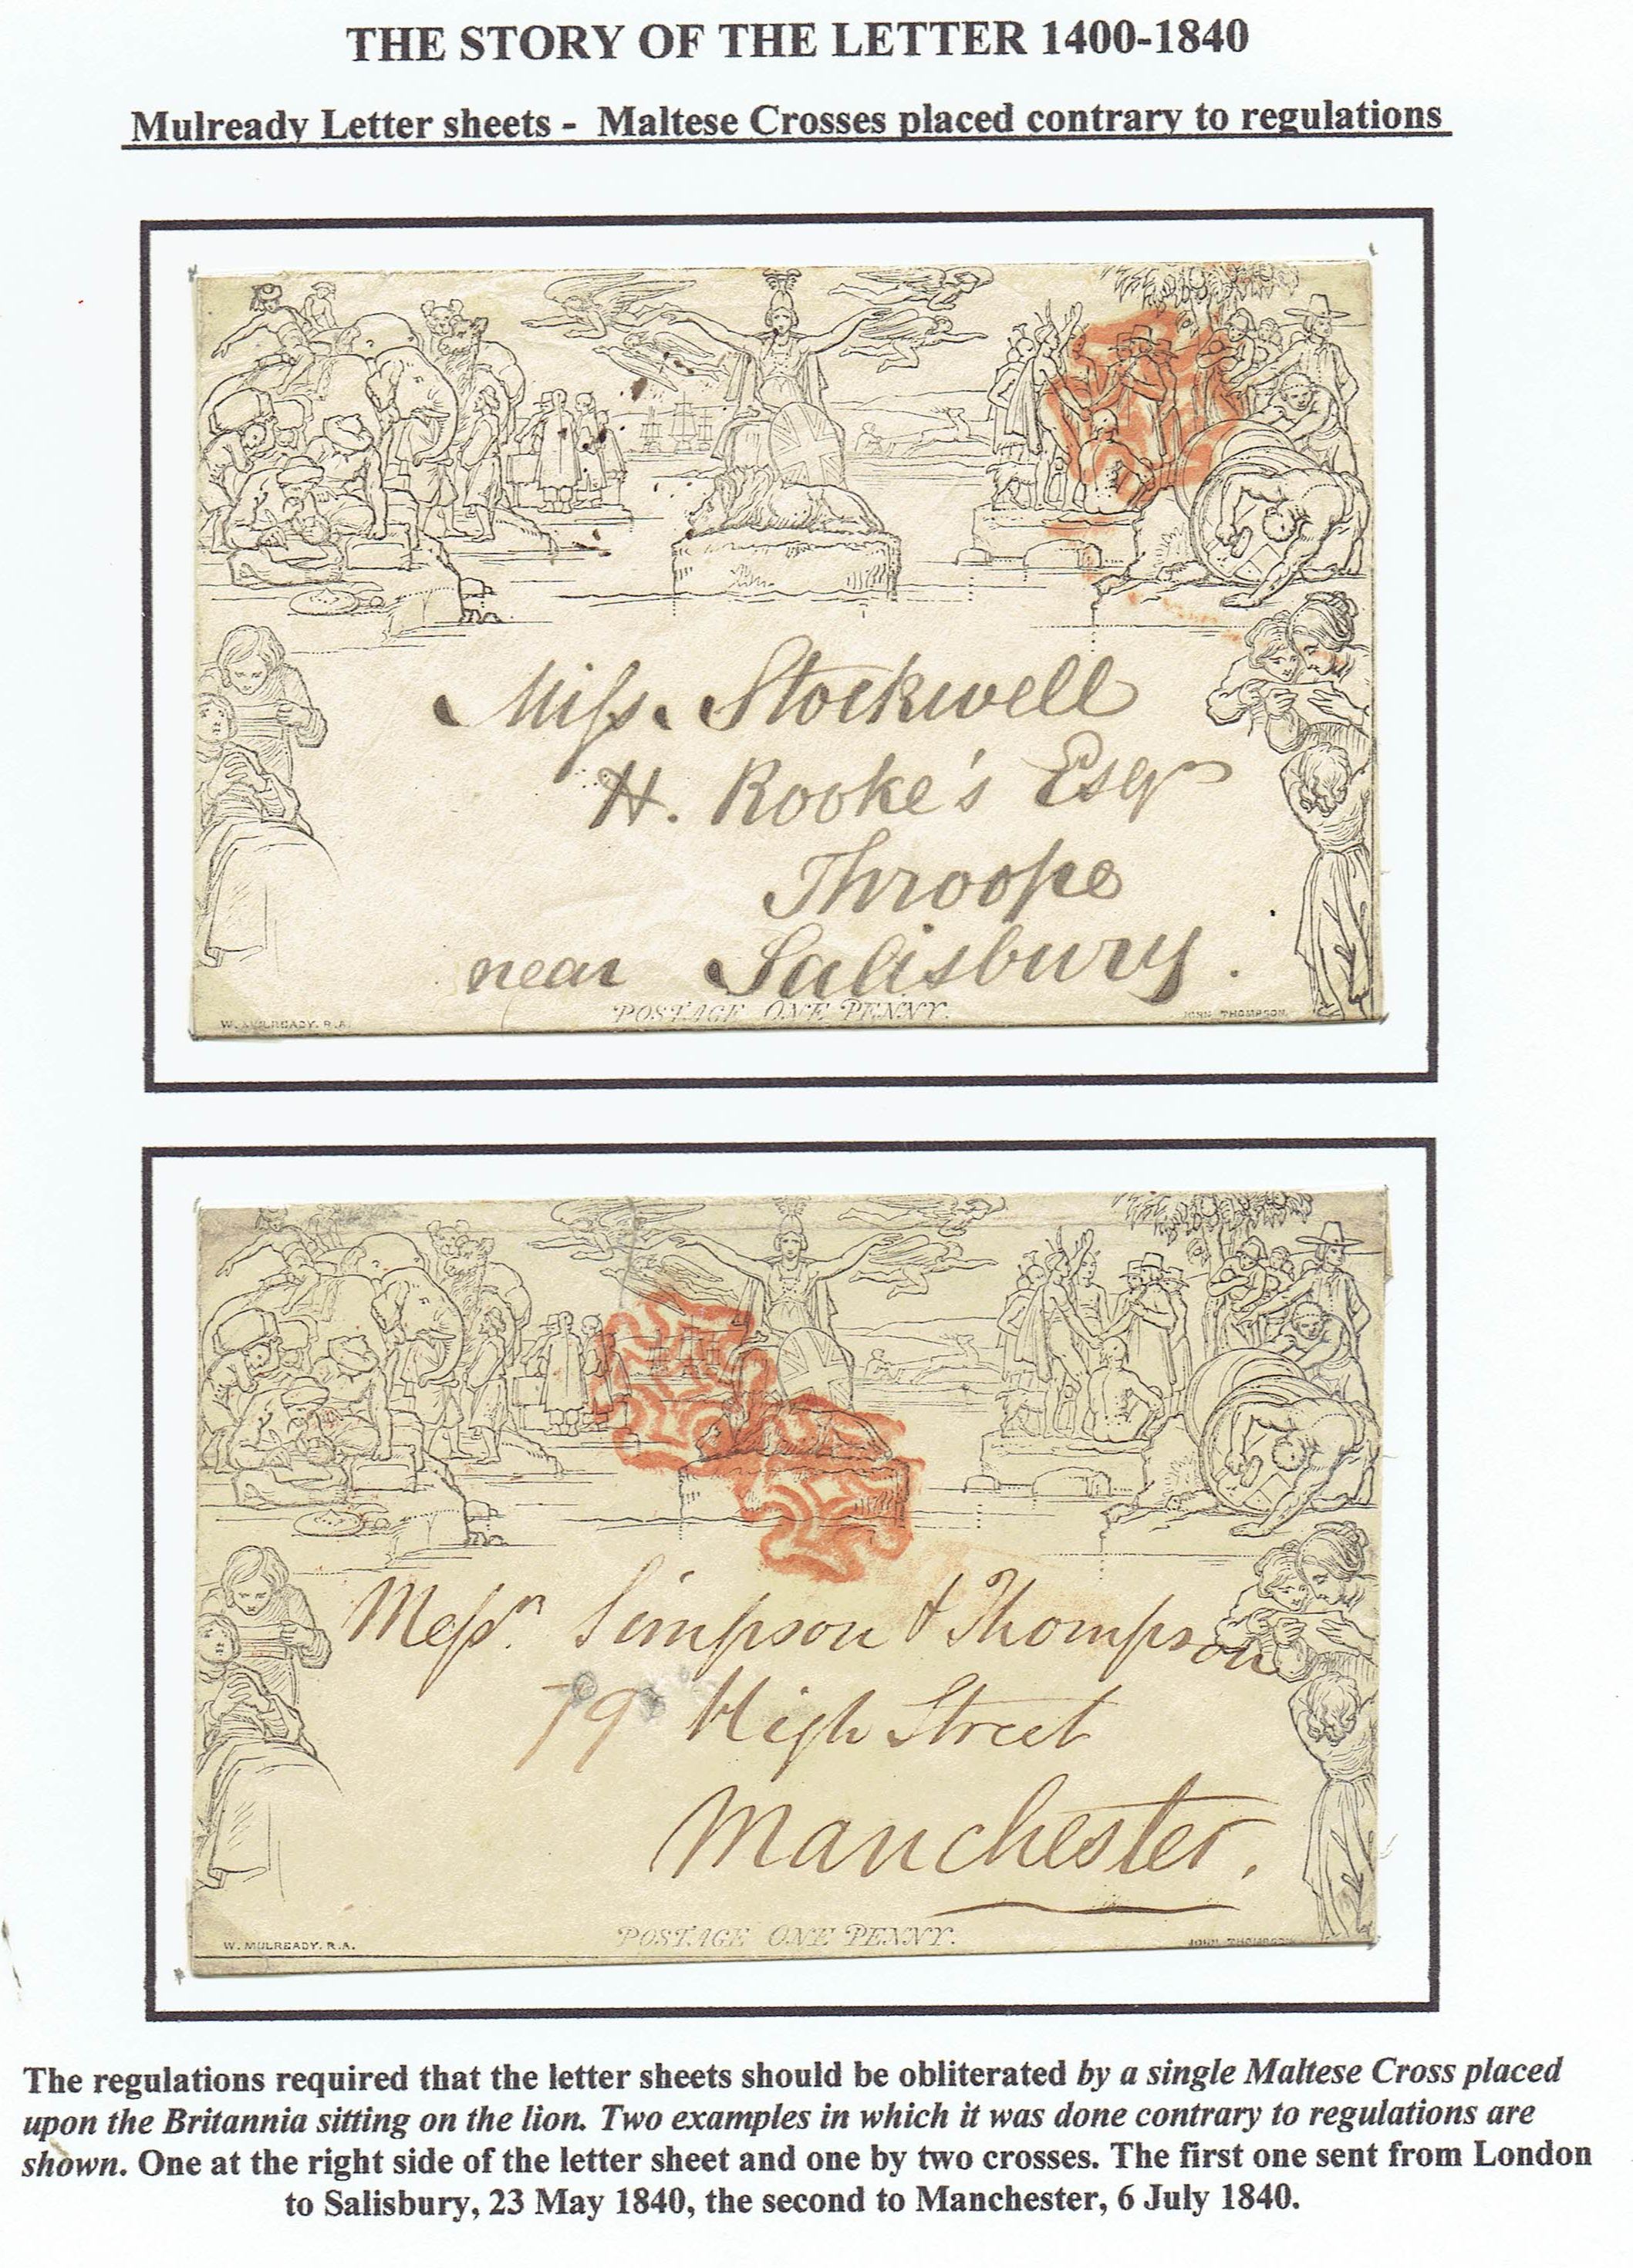 THE STORY OF THE LETTER 1400-1840
Mulready Letter sheets - Maltese Crosses placed contrary to regulations
Miſs. Stockwell
H. Rooke's Esqr
Throope
near Salisbury.
POSTAGE ONE PENNY.
W. MULREADY. R.A.
JOHN THOMPSON.
Meſsrs. Simpson & Thompson
79 High Street
Manchester.
POSTAGE ONE PENNY.
W. MULREADY. R.A.
JOHN THOMPSON
The regulations required that the letter sheets should be obliterated by a single Maltese Cross placed
upon the Britannia sitting on the lion. Two examples in which it was done contrary to regulations are
shown. One at the right side of the letter sheet and one by two crosses. The first one sent from London
to Salisbury, 23 May 1840, the second to Manchester, 6 July 1840.